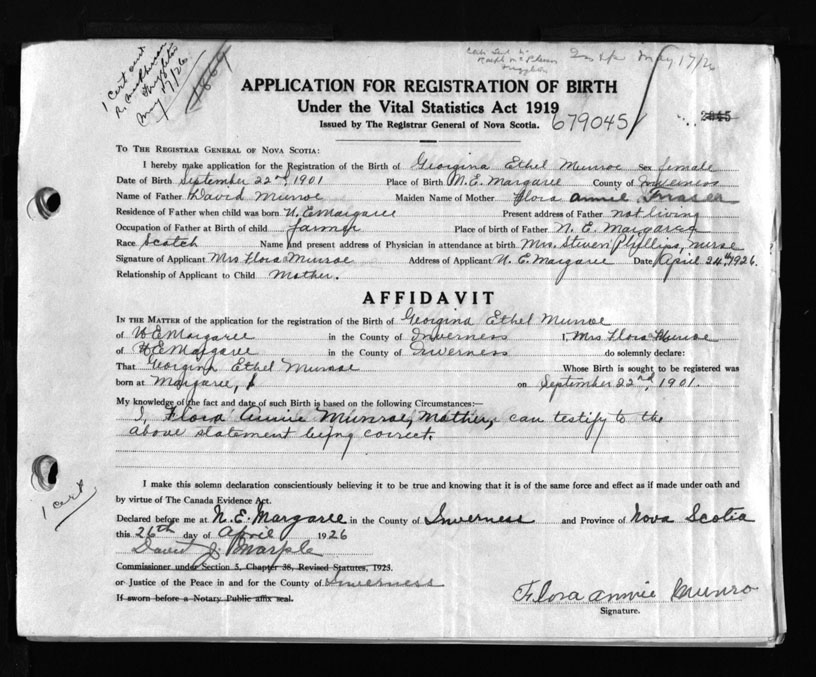 1 cert sent
May 17/26
1869
May 17/26
APPLICATION FOR REGISTRATION OF BIRTH
Under the Vital Statistics Act 1919
Issued by The Registrar General of Nova Scotia. 679045
2845
TO THE REGISTRAR GENERAL OF NOVA SCOTIA:
I hereby make application for the Registration of the Birth of Georgina Ethel Munroe Sex female
Date of Birth September 22nd, 1901 Place of Birth N.E. Margaree County of Inverness
Name of Father David Munroe Maiden Name of Mother Flora Annie Fraser
Residence of Father when child was born N.E Margaree Present address of Father not living
Occupation of Father at Birth of child farmer Place of birth of Father N. E. Margaree
Race Scotch Name and present address of Physician in attendance at birth Mrs. Steven Phyllips, nurse
Signature of Applicant Mrs Flora Munroe Address of Applicant N. E. Margaree Date April 24th, 1926.
Relationship of Applicant to Child Mother.
AFFIDAVIT
IN THE MATTER of the application for the registration of the Birth of Georgina Ethel Munroe
of N E Margaree in the County of Inverness I, Mrs Flora Munroe
of N E Margaree in the County of Inverness do solemnly declare:
That Georgina Ethel Munroe Whose Birth is sought to be registered was
born at Margaree, on September 22nd, 1901.
My knowledge of the fact and date of such Birth is based on the following Circumstances:—
I, Flora Annie Munroe, Mother, can testify to the
above statement being correct.
I make this solemn declaration conscientiously believing it to be true and knowing that it is of the same force and effect as if made under oath and
by virtue of The Canada Evidence Act.
Declared before me at N.E. Margaree in the County of Inverness and Province of Nova Scotia
this 26th day of April 1926
David J. Marple
Commissioner under Section 5, Chapter 38, Revised Statutes, 1923.
or Justice of the Peace in and for the County of Inverness
If sworn before a Notary Public affix seal.
Flora Annie Munro
Signature.
1 cert